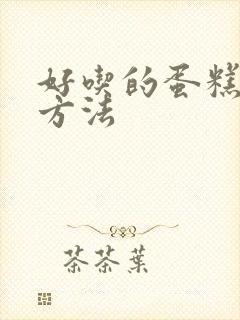 好喫的蛋糕
方法
茶茶葉